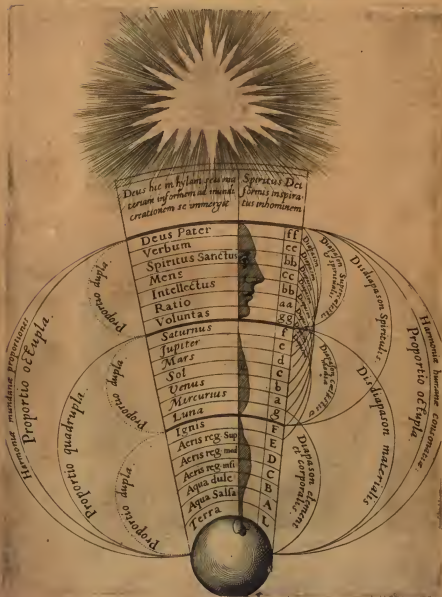 Deus hic in hylam seu ma
teriam informem ad mundi
creationem se immergit
Spiritus Dei
formis inspira
tus in hominem
Deus Pater
Verbum
Spiritus Sanctus
Mens
Intellectus
Ratio
Voluntas
Saturnus
Jupiter
Mars
Sol
Venus
Mercurius
Luna
Ignis
Aeris reg. Sup
Aeris reg. med
Aeris reg. infi
Aqua dulc
Aqua Salsa
Terra
ff
ee
bb
cc
bb
aa
gg
f
e
d
c
b
a
g
F
E
D
C
B
A
Γ
Harmoniæ mundanæ proportiones
Proportio octupla.
Proportio quadrupla
Proportio dupla
Proportio dupla
Proportio dupla
Diapason
spiritualis.
Disdiapason Spiritualis.
Diapason
Diapason element
et corporalis.
Disdiapason materialis
Harmoniæ humanæ consonantiæ:
Proportio octupla.